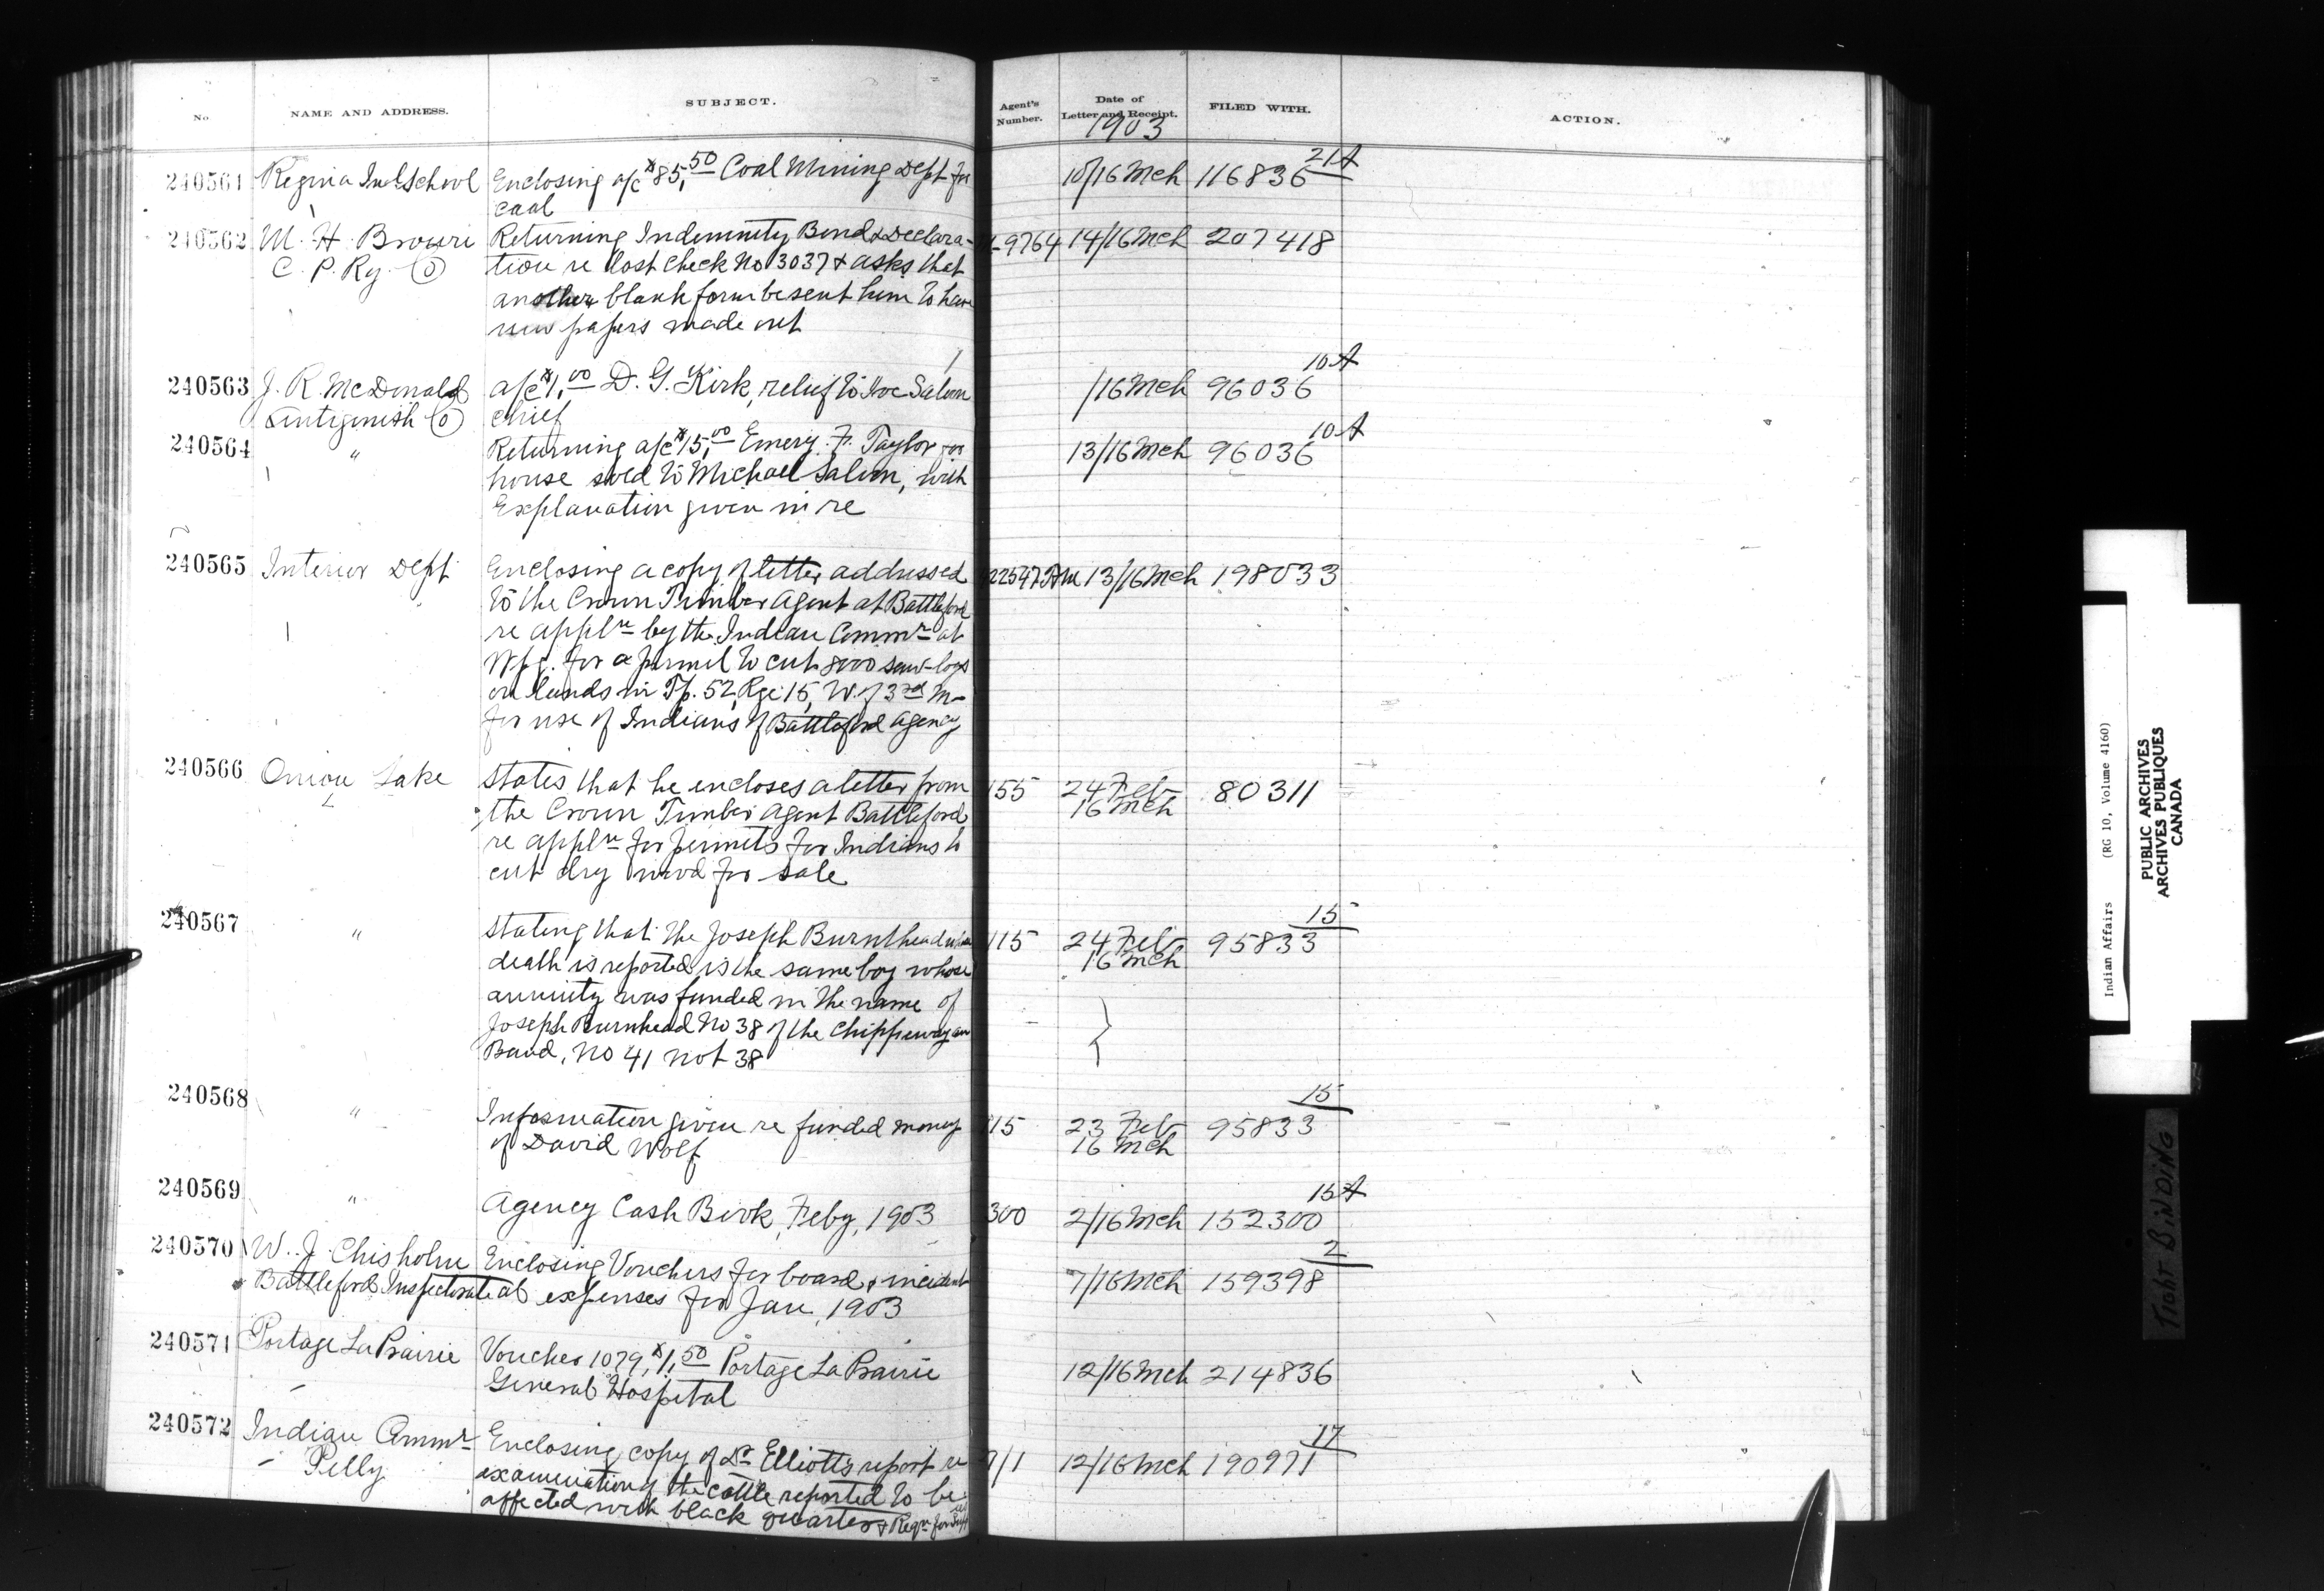 No. NAME AND ADDRESS. SUBJECT. Agent's Number. Date of Letter and Receipt. FILED WITH. ACTION.
1903
240561 Regina Ind School Enclosing a/c $85.50 Coal Mining Dept for 10/16 Mch 116836 21A
coal
240562 M. H. Brown Returning Indemnity Bond & Declara- 9764 14/16 Mch 207418
C. P. Ry. Co tion re lost check No 3037 & asks that
another blank form be sent him to have
new papers made out
240563 J. R. McDonald a/c $1.00 D. G. Kirk, relief to Joe Salom /16 Mch 96036 10A
Antigonish Co chief
240564 " Returning a/c $15.00 Emery F. Taylor for 13/16 Mch 96036 10A
house sold to Michael Salom, with
Explanation given in re
240565 Interior Dept Enclosing a copy of letter addressed 22547 13/16 Mch 198033
to the Crown Timber Agent at Battleford
re appln by the Indian Commr at
Wpg. for a permit to cut 8000 saw-logs
on lands in Tp. 52, Rge 15, W. of 3rd M-
for use of Indians of Battleford Agency
240566 Onion Lake States that he encloses a letter from 155 24 Feb 80311
the Crown Timber Agent Battleford 16 Mch
re appln for permits for Indians to
cut dry wood for sale
240567 " Stating that the Joseph Burnthead whose 115 24 Feb 95833 15
death is reported is the same boy whose 16 Mch
annuity was funded in the name of
Joseph Burnhead No 38 of the Chippewayan
Band, No 41 not 38
240568 " Information given re funded money 15 23 Feb 95833 15
of David Wolf 16 Mch
240569 " Agency Cash Book, Feby, 1903 300 2/16 Mch 152300 15A
240570 W. J. Chisholm Enclosing Vouchers for board & incident 7/16 Mch 159398 2
Battleford Inspectorate al expenses for Jan, 1903
240571 Portage La Prairie Voucher 1079, $1.50 Portage La Prairie 12/16 Mch 214836
General Hospital
240572 Indian Commr Enclosing copy of Dr Elliott's report re /1 12/16 Mch 190971 17
Pelly examination of the cattle reported to be
affected with black quarter & Reqn for
Indian Affairs (RG 10, Volume 4160)
PUBLIC ARCHIVES
ARCHIVES PUBLIQUES
CANADA
TIGHT BINDING